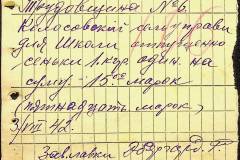 Трудовщина № 6.
Колосовской
для Школы отпущено
сеньки 1 кор один. на
сумму - 15 00 марок
(пятнадцать марок)
3/VII 42.
Зав. лавки